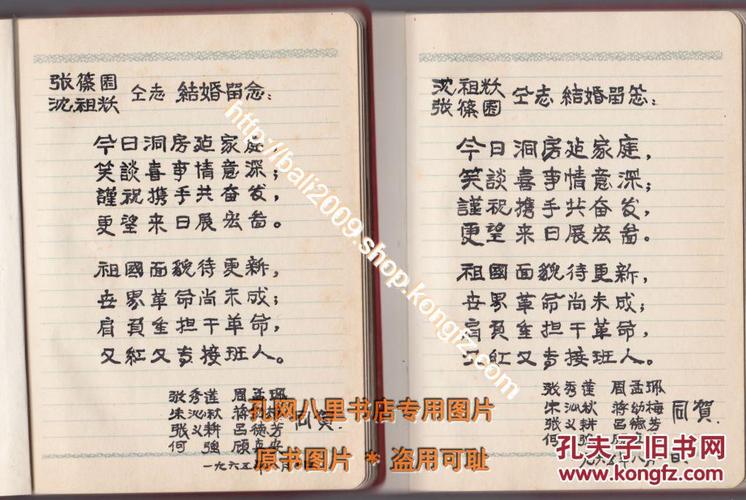 张篠园
沈祖燚 仝志 結婚留念：
今日洞房延家庭，
笑談喜事情意深；
謹祝携手共奋发，
更望来日展宏畣。
祖國面貌待更新，
世界革命尚未成；
肩負重担干革命，
又紅又专接班人。
张秀蓮 周孟珮
朱沁秋 蒋
张义耕 呂德芳
何強 顾
同賀
一九六五年
沈祖燚
张篠园 仝志 結婚留念：
今日洞房延家庭，
笑談喜事情意深；
謹祝携手共奋发，
更望来日展宏畣。
祖國面貌待更新，
世界革命尚未成；
肩負重担干革命，
又紅又专接班人。
张秀蓮 周孟珮
朱沁秋 蒋幼梅
张义耕 呂德芳
何
同賀.
http://bali2009.shop.kongfz.com
孔网八里书店专用图片
原书图片 * 盗用可耻
孔夫子旧书网
www.kongfz.com